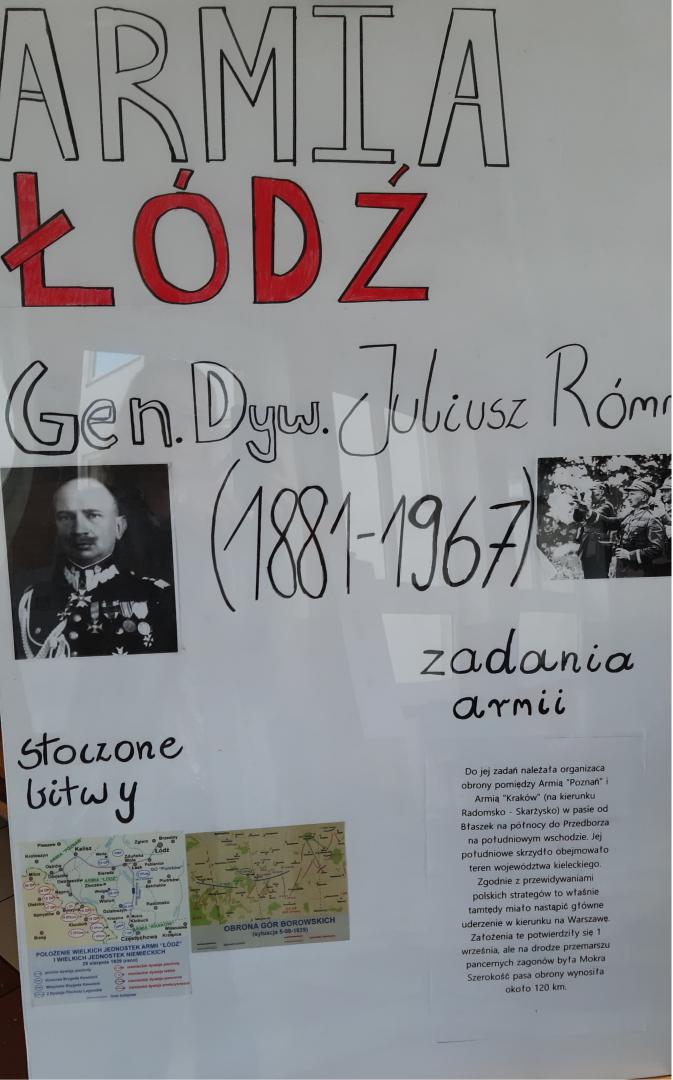 ARMIA
ŁÓDŹ
Gen. Dyw. Juliusz Róm
(1881-1967)
zadania
armii
stoczone
bitwy
Do jej zadań należała organizaca
obrony pomiędzy Armią "Poznań" i
Armią "Kraków" (na kierunku
Radomsko - Skarżysko) w pasie od
Błaszek na północy do Przedborza
na południowym wschodzie. Jej
południowe skrzydło obejmowało
teren województwa kieleckiego.
Zgodnie z przewidywaniami
polskich strategów to właśnie
tamtędy miało nastąpić główne
uderzenie w kierunku na Warszawę.
Założenia te potwierdziły się 1
września, ale na drodze przemarszu
pancernych zagonów była Mokra
Szerokość pasa obrony wynosiła
około 120 km.
Kalisz
Łódź
Częstochowa
POŁOŻENIE WIELKICH JEDNOSTEK ARMII "ŁÓDŹ"
I WIELKICH JEDNOSTEK NIEMIECKICH
OBRONA GÓR BOROWSKICH
(sytuacja 5-09-1939)